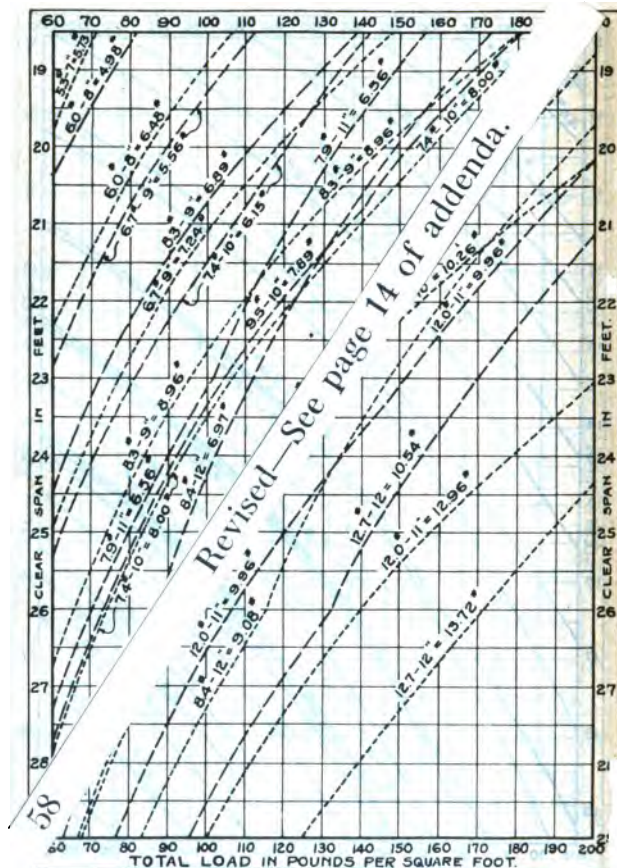 60 70 80 90 100 110 120 130 140 150 160 170 180
19
20
21
22
23
24
25
26
27
28
CLEAR SPAN IN FEET
6.0-8=4.98#
6.0-8=6.48#
6.7#-9"=5.56#
8.3-9"=6.89#
6.7#-9"=7.24#
7.4#-10"=6.15#
7.9#-11"=6.36#
8.3#-9"=8.96#
7.4#-10"=8.00#
9.5-10"=7.89#
=10.26#
12.0#-11"=9.96#
8.3#-9"=8.96#
7.9#-11"=6.36#
7.4#-10"=8.00#
8.4-12"=6.97#
12.7-12=10.54#
12.0-11"=12.96#
12.0#-11"=9.96#
8.4-12"=9.08#
12.7-12"=13.72#
Revised—See page 14 of addenda.
58
19
20
21
22
23
24
25
26
CLEAR SPAN IN FEET.
60 70 80 90 100 110 120 130 140 150 160 170 180 190 200
TOTAL LOAD IN POUNDS PER SQUARE FOOT.